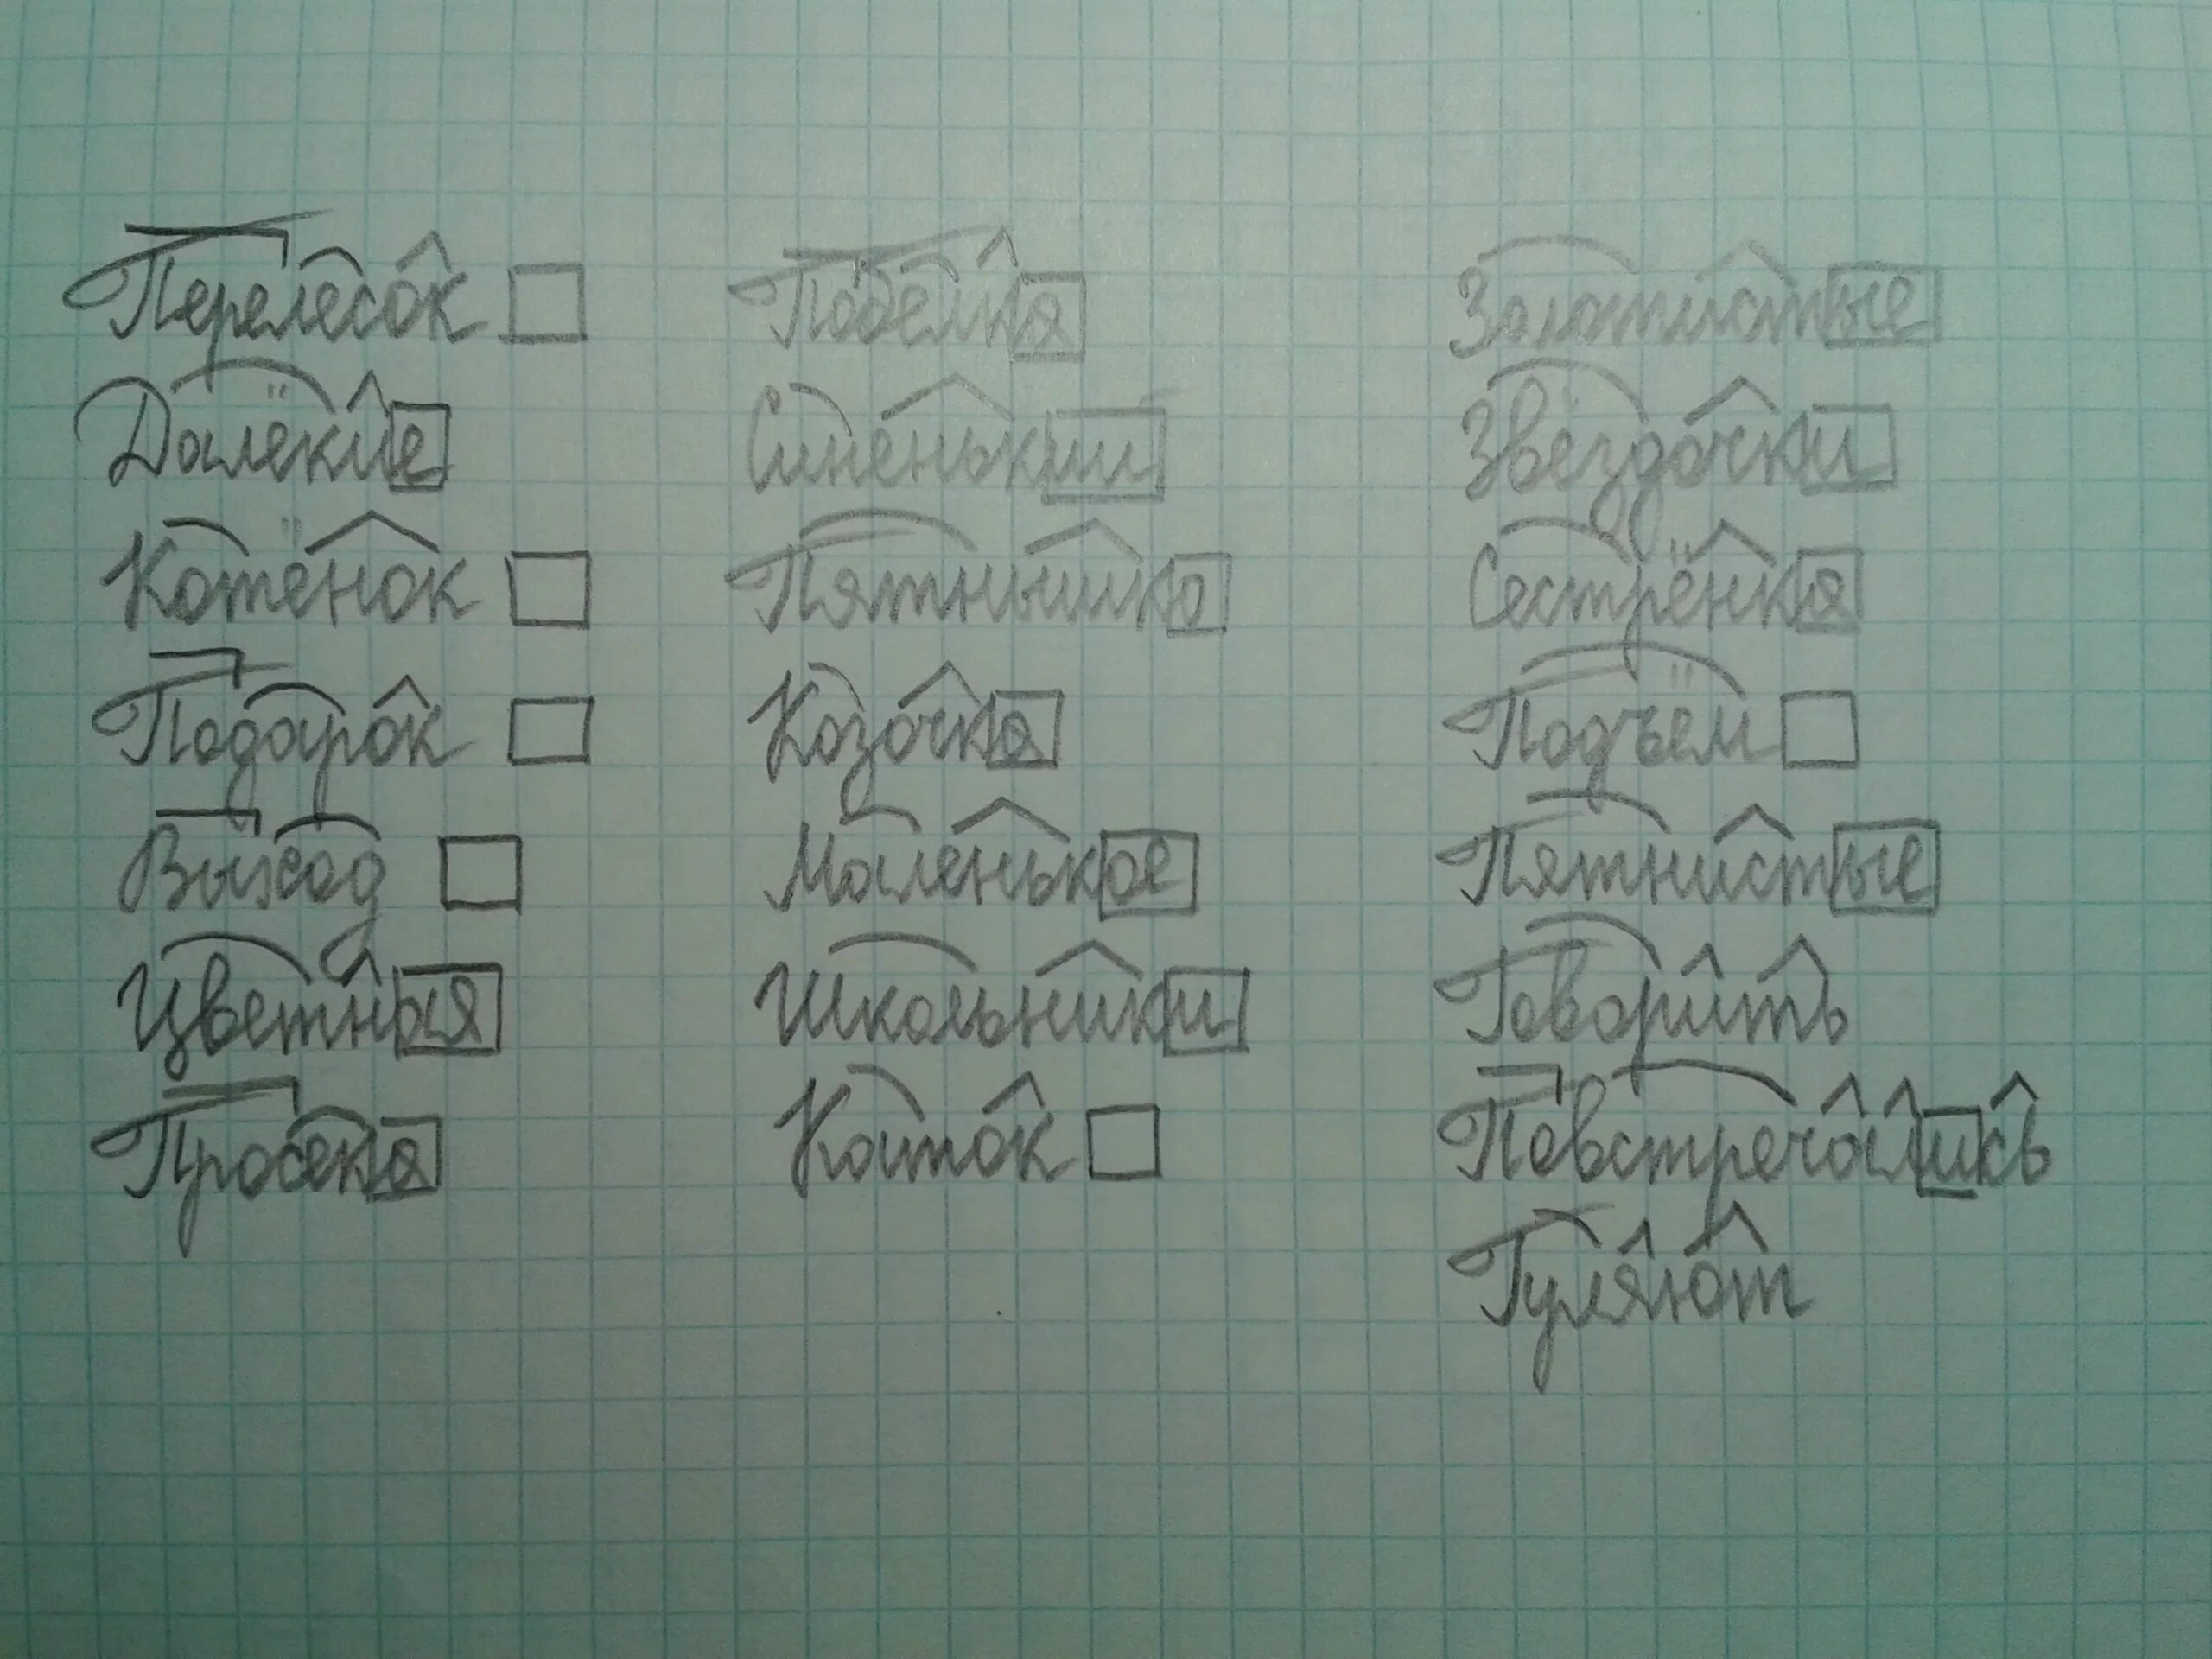 Перелесок
Далёкие
Котёнок
Подарок
Выход
Цветная
Просека
Поделка
Синенький
Пятнышко
Козочка
Маленькое
Школьники
Каток
Золотистые
Звёздочки
Сестрёнка
Подъём
Пятнистые
Говорить
Повстречались
Гуляют